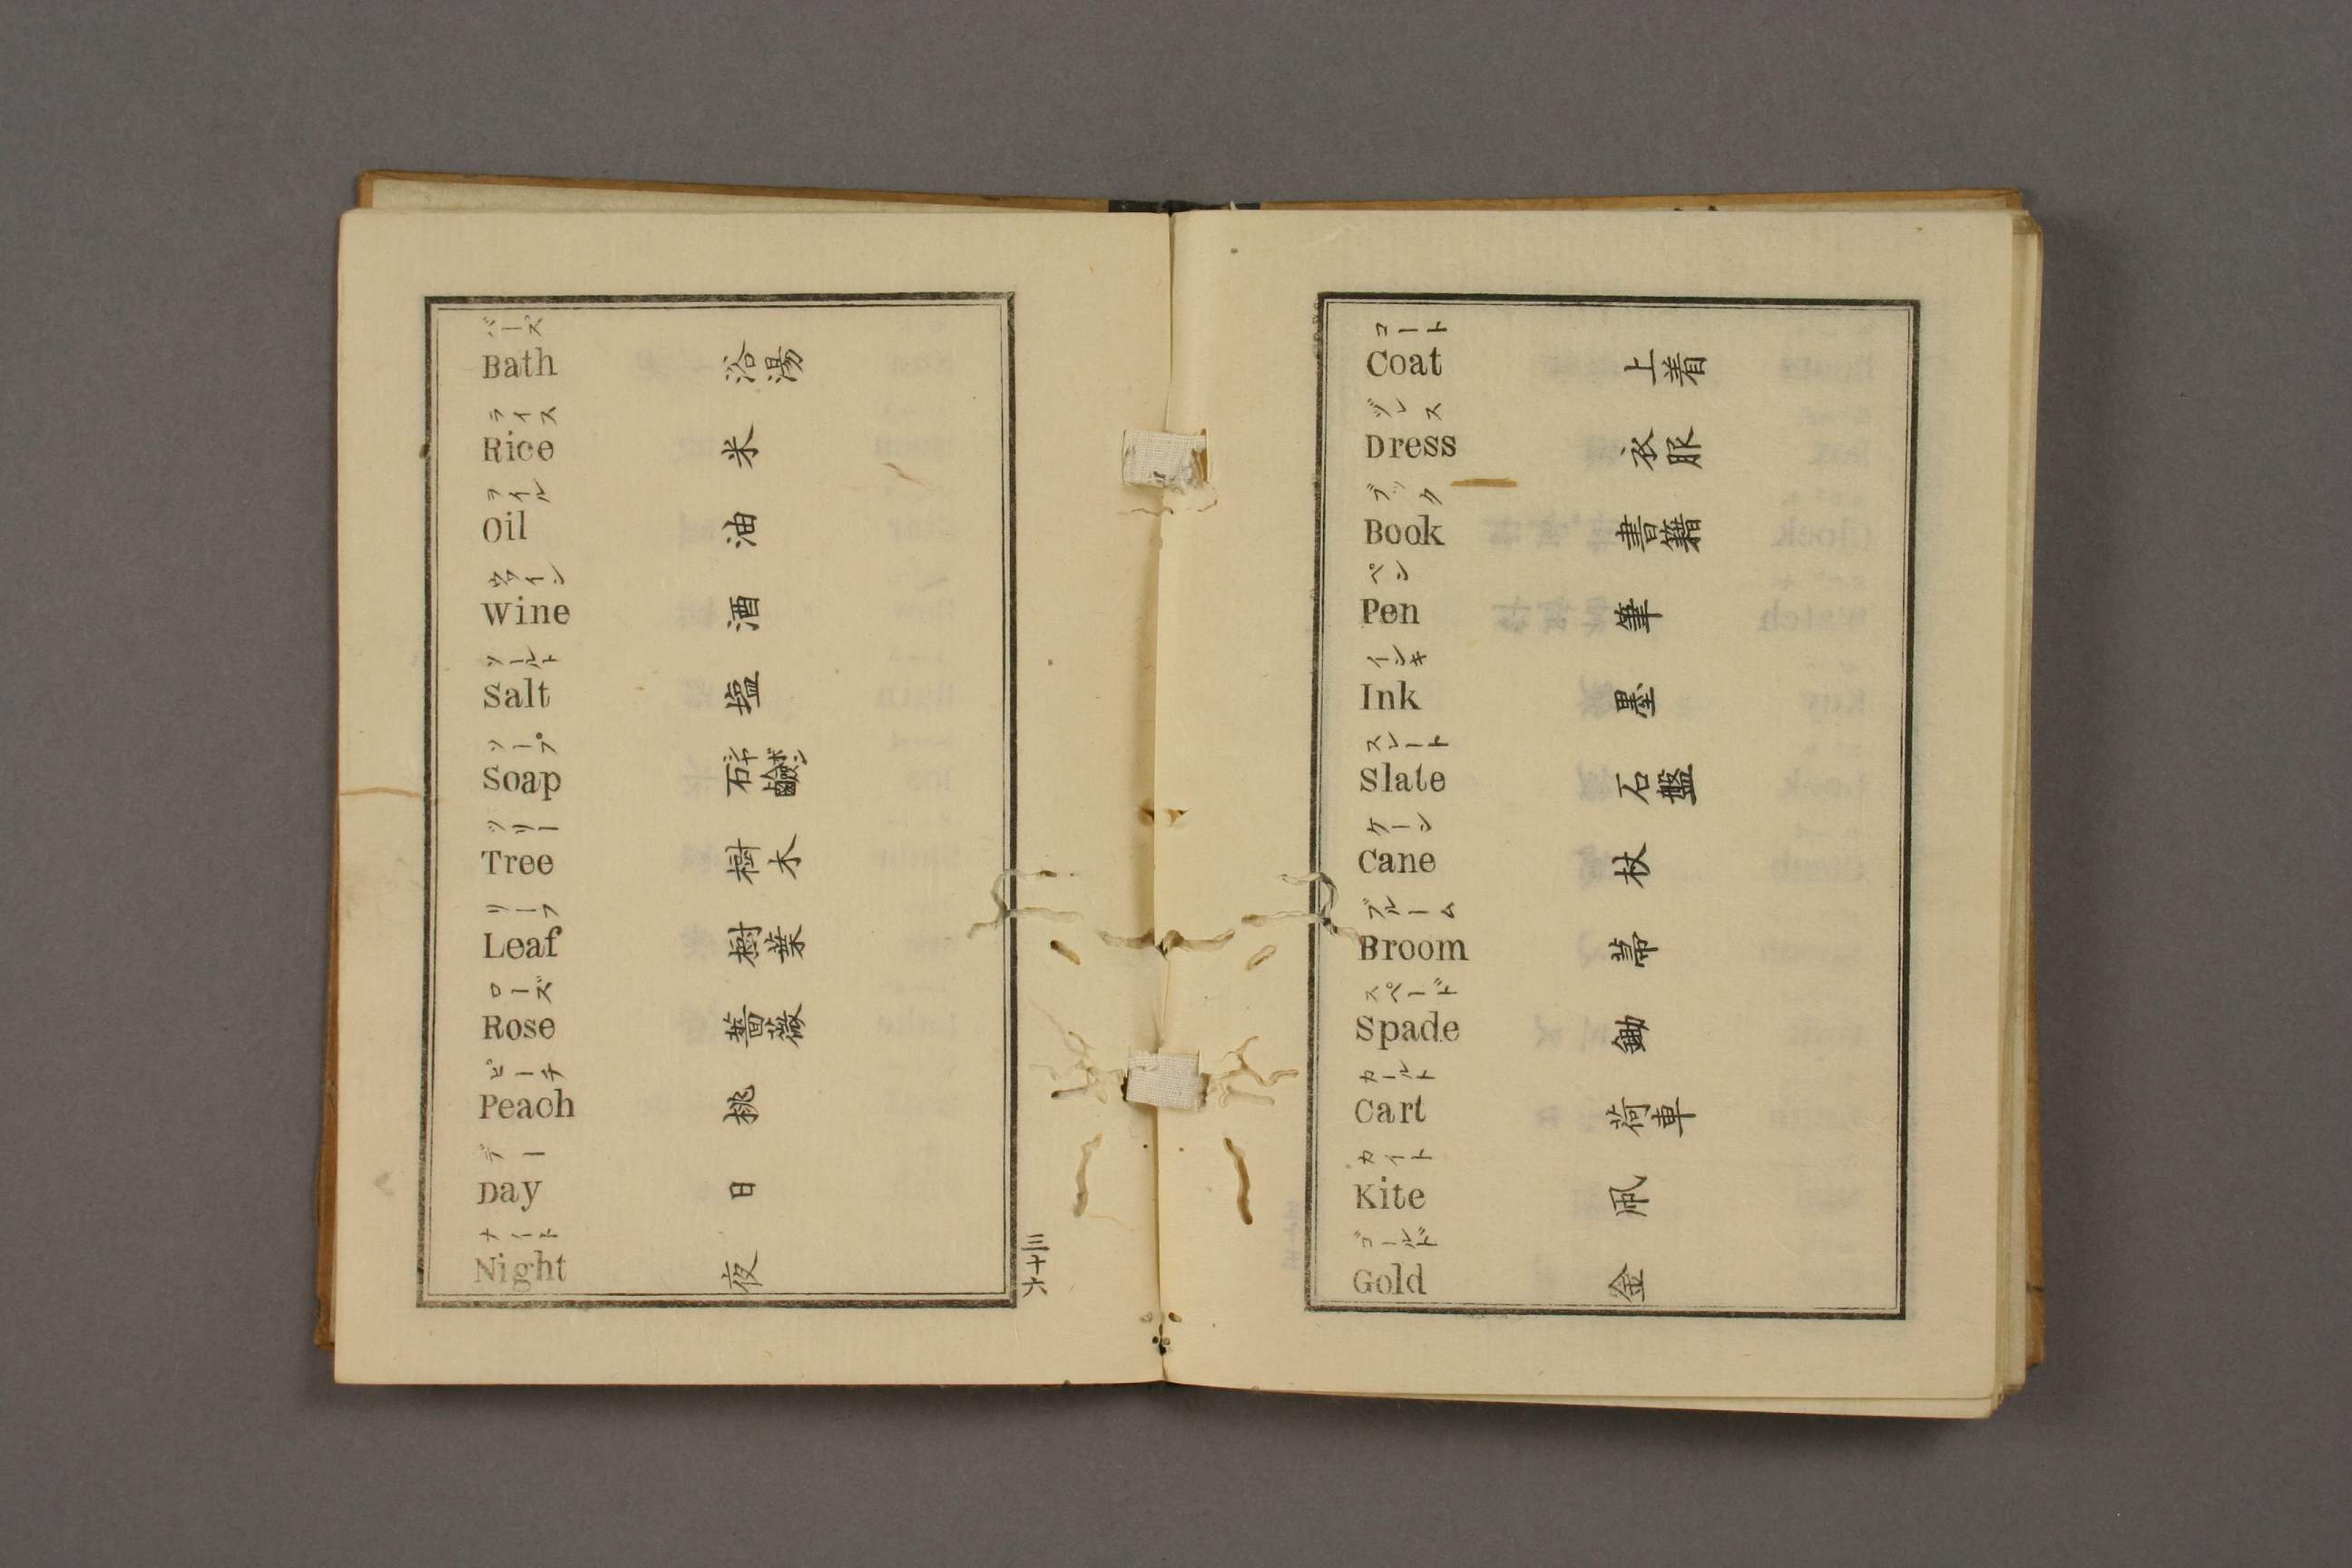 バース
Bath 浴湯
ライス
Rice 米
ヲイル
Oil 油
ウワイン
Wine 酒
ソールト
Salt 塩
ソープ
Soap 石鹼 シヤボン
ツリー
Tree 樹木
リーフ
Leaf 樹葉
ローズ
Rose 薔薇
ピーチ
Peach 桃
デー
Day 日
ナイト
Night 夜
三十六
コート
Coat 上着
ヅレス
Dress 衣服
ブック
Book 書籍
ペン
Pen 筆
インキ
Ink 墨
スレート
Slate 石盤
ケーン
Cane 杖
ブルーム
Broom 菷
スペード
Spade 鋤
カールト
Cart 荷車
カイト
Kite 凧
ゴールド
Gold 金